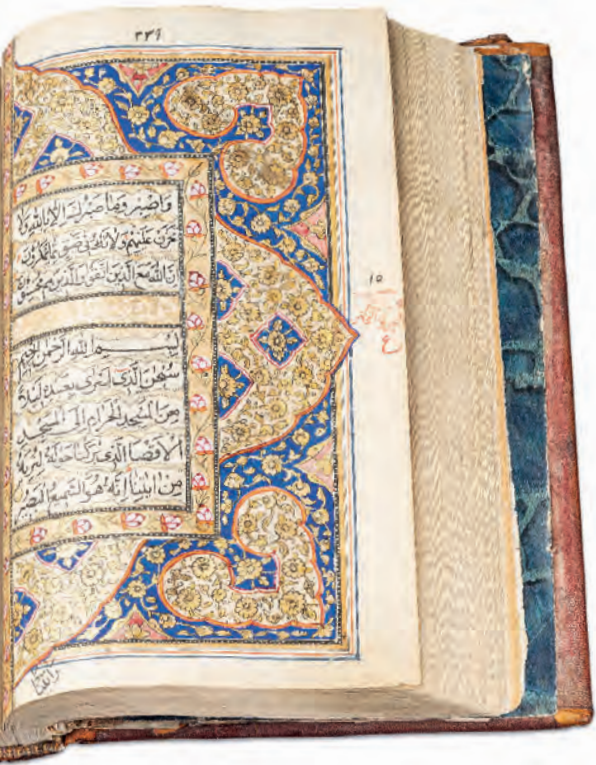 ٣٣٩
وَاصْبِرْ وَمَا صَبْرُكَ اِلَّا بِاللّٰهِ وَلَا
تَحْزَنْ عَلَيْهِمْ وَلَا تَكُ فِي ضَيْقٍ مِمَّا يَمْكُرُونَ
اِنَّ اللّٰهَ مَعَ الَّذِينَ اتَّقَوْا وَالَّذِينَ هُمْ مُحْسِنُونَ
بِسْمِ اللّٰهِ الرَّحْمٰنِ الرَّحِيمِ
سُبْحٰنَ الَّذِي اَسْرٰى بِعَبْدِهِ لَيْلًا
مِنَ الْمَسْجِدِ الْحَرَامِ اِلَى الْمَسْجِدِ
الْاَقْصَا الَّذِي بٰرَكْنَا حَوْلَهُ لِنُرِيَهُ
مِنْ اٰيٰتِنَا اِنَّهُ هُوَ السَّمِيعُ الْبَصِيرُ
١٥